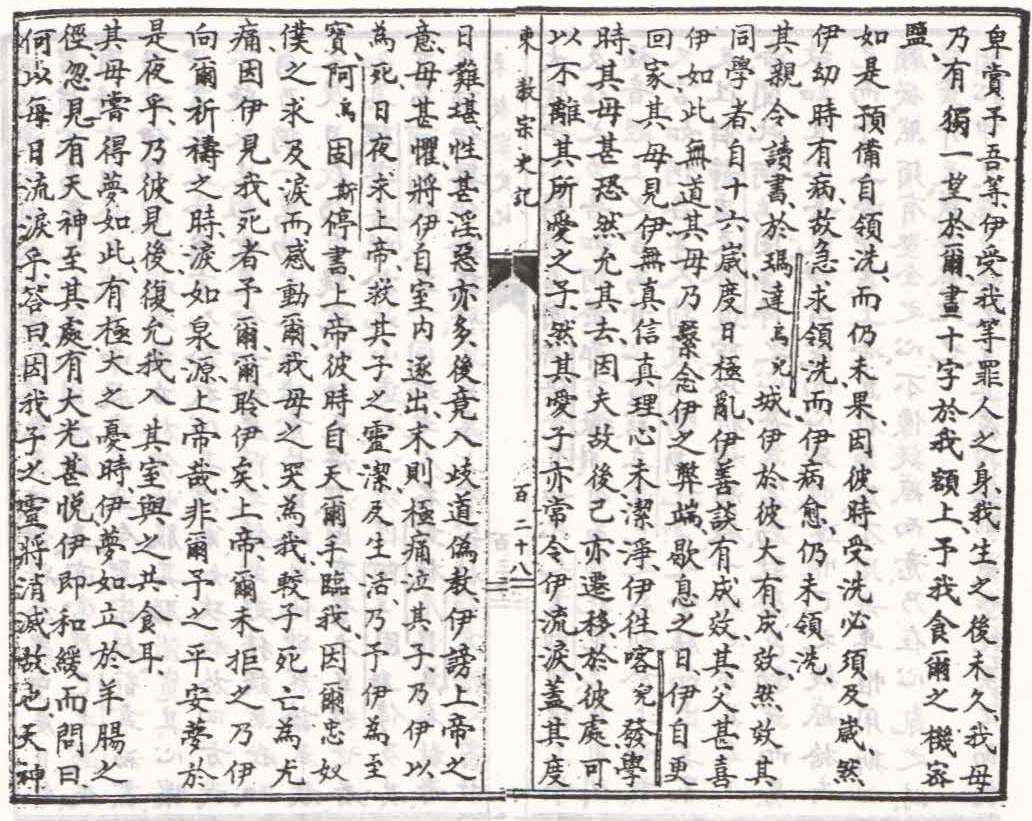 卑賣予吾等、伊受我等罪人之身、我生之後未久、我母
乃有獨一望於爾、畫十字於我額上、予我食爾之機密
鹽、
如是預備自領洗、而仍未果、因彼時受洗必須及歲、然
伊幼時有病、故急求領洗、而伊病愈、仍未領洗、
其親令讀書、於瑪達烏兒城、伊於彼大有成效、然效其
同學者、自十六歲、度日極亂、伊善談有成效、其父甚喜
伊如此無道、其母乃繫念伊之弊端、歇息之日、伊自更
回家、其母見伊無真信真理、心未潔淨、伊往喀兒發學
時、其母甚恐、然允其去、因夫故後、己亦遷移於彼處、可
以不離其所愛之子、然其愛子亦常令伊流淚、蓋其度
東教宗史記
百二十八
日難堪、性甚淫、惡亦多、後竟入歧道偽教、伊謗上帝之
意、母甚懼、將伊自室內逐出、末則極痛泣其子、乃伊以
為死、日夜求上帝、救其子之靈潔及生活、乃予伊為至
寶、阿烏固斯停書、上帝彼時自天爾手臨我、因爾忠奴
僕之求及淚而感動爾、我母之哭為我、較子死亡為尤
痛、因伊見我死者、予爾、爾聆伊矣、上帝、爾未拒之、乃伊
向爾祈禱之時、淚如泉源、上帝哉、非爾予之平安夢於
是夜乎、乃彼見後、復允我入其室、與之共食耳、
其母嘗得夢如此、有極大之憂時、伊夢如立於羊腸之
徑、忽見有天神至其處、有大光甚悅、伊即和緩而問曰、
何以每日流淚乎、答曰、因我子之靈將消滅故也、天神